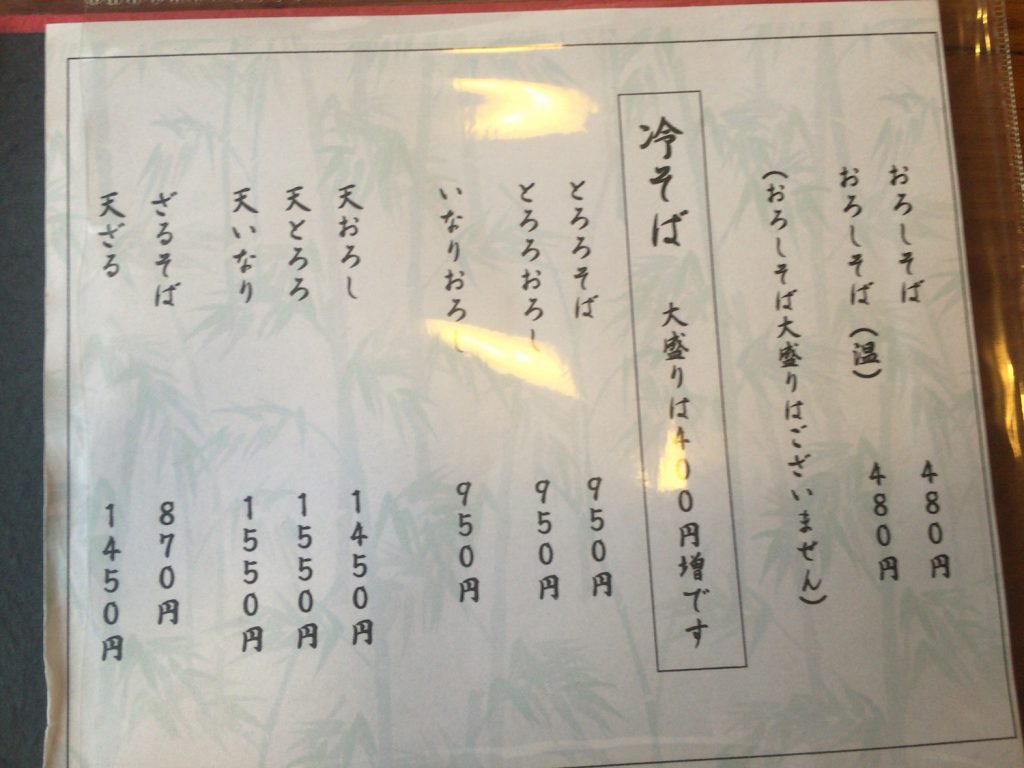 おろしそば 480円
おろしそば（温） 480円
（おろしそば大盛りはございません）
冷そば 大盛りは400円増です
とろろそば 950円
とろろおろし 950円
いなりおろし 950円
天おろし 1450円
天とろろ 1550円
天いなり 1550円
ざるそば 870円
天ざる 1450円